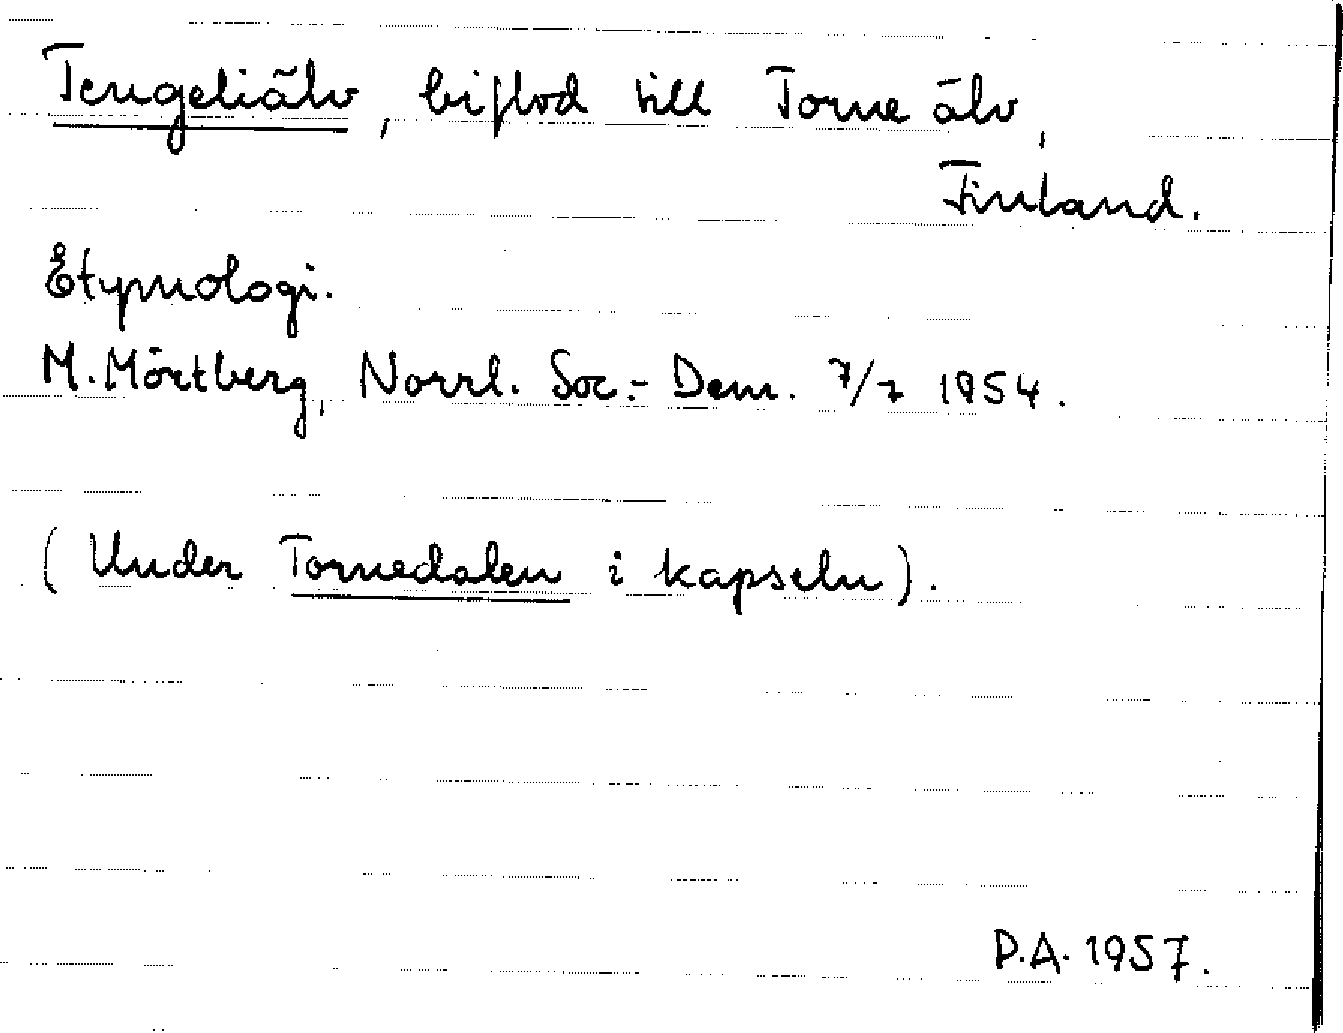 Tengeliälv, biflod till Torne älv,
Finland.
Etymologi.
M. Mörtberg, Norrl. Soc.-Dem. 7/7 1954.
(Under Tornedalen i kapseln).
D.A. 1957.